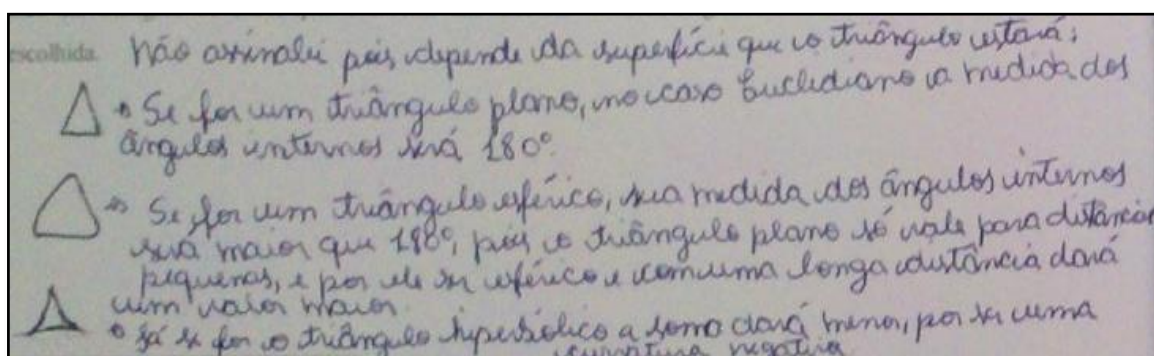 escolhida. Não assinalei pois, depende da superfície que o triângulo estará:
• Se for um triângulo plano, no caso Euclidiano a medida dos
ângulos internos será 180°.
⇒ Se for um triângulo esférico, sua medida dos ângulos internos
será maior que 180°, pois o triângulo plano só vale para distâncias
pequenas, e por ele ser esférico e com uma longa distância dará
um valor maior.
• já se for o triângulo hiperbólico a soma dará menor, por ser uma
curvatura negativa